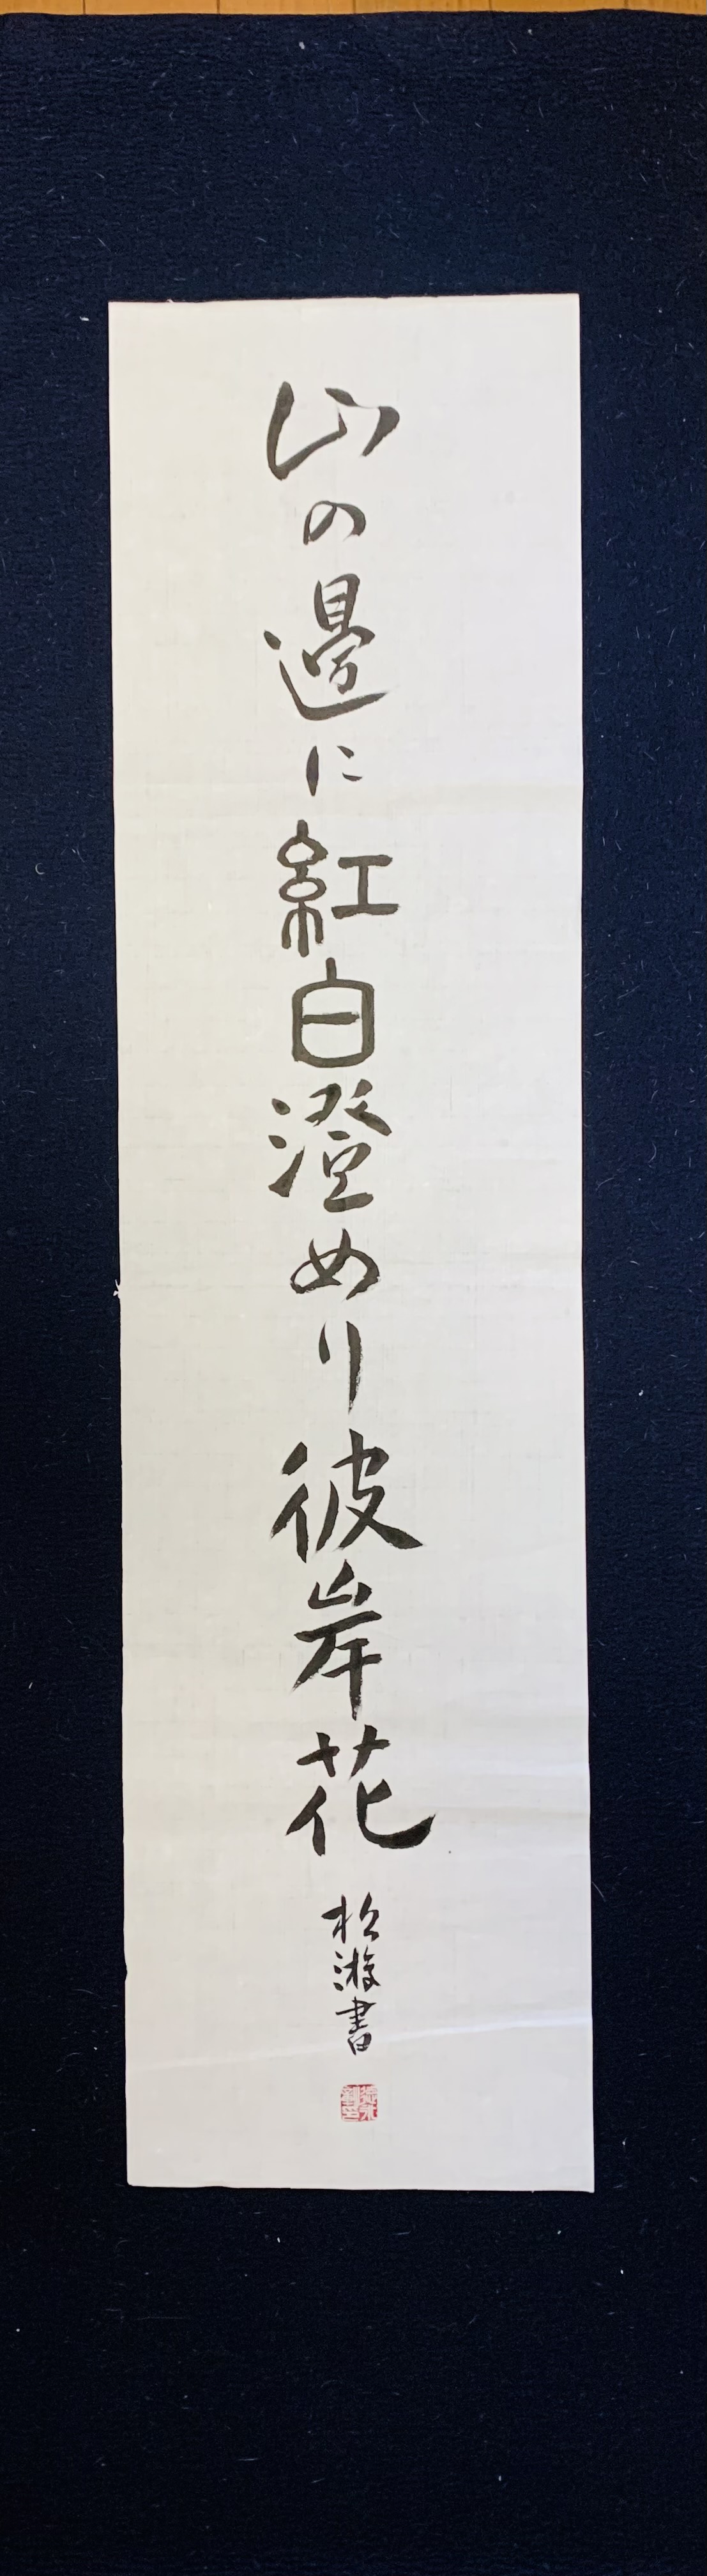 山の邊に紅白澄めり彼岸花
松游書